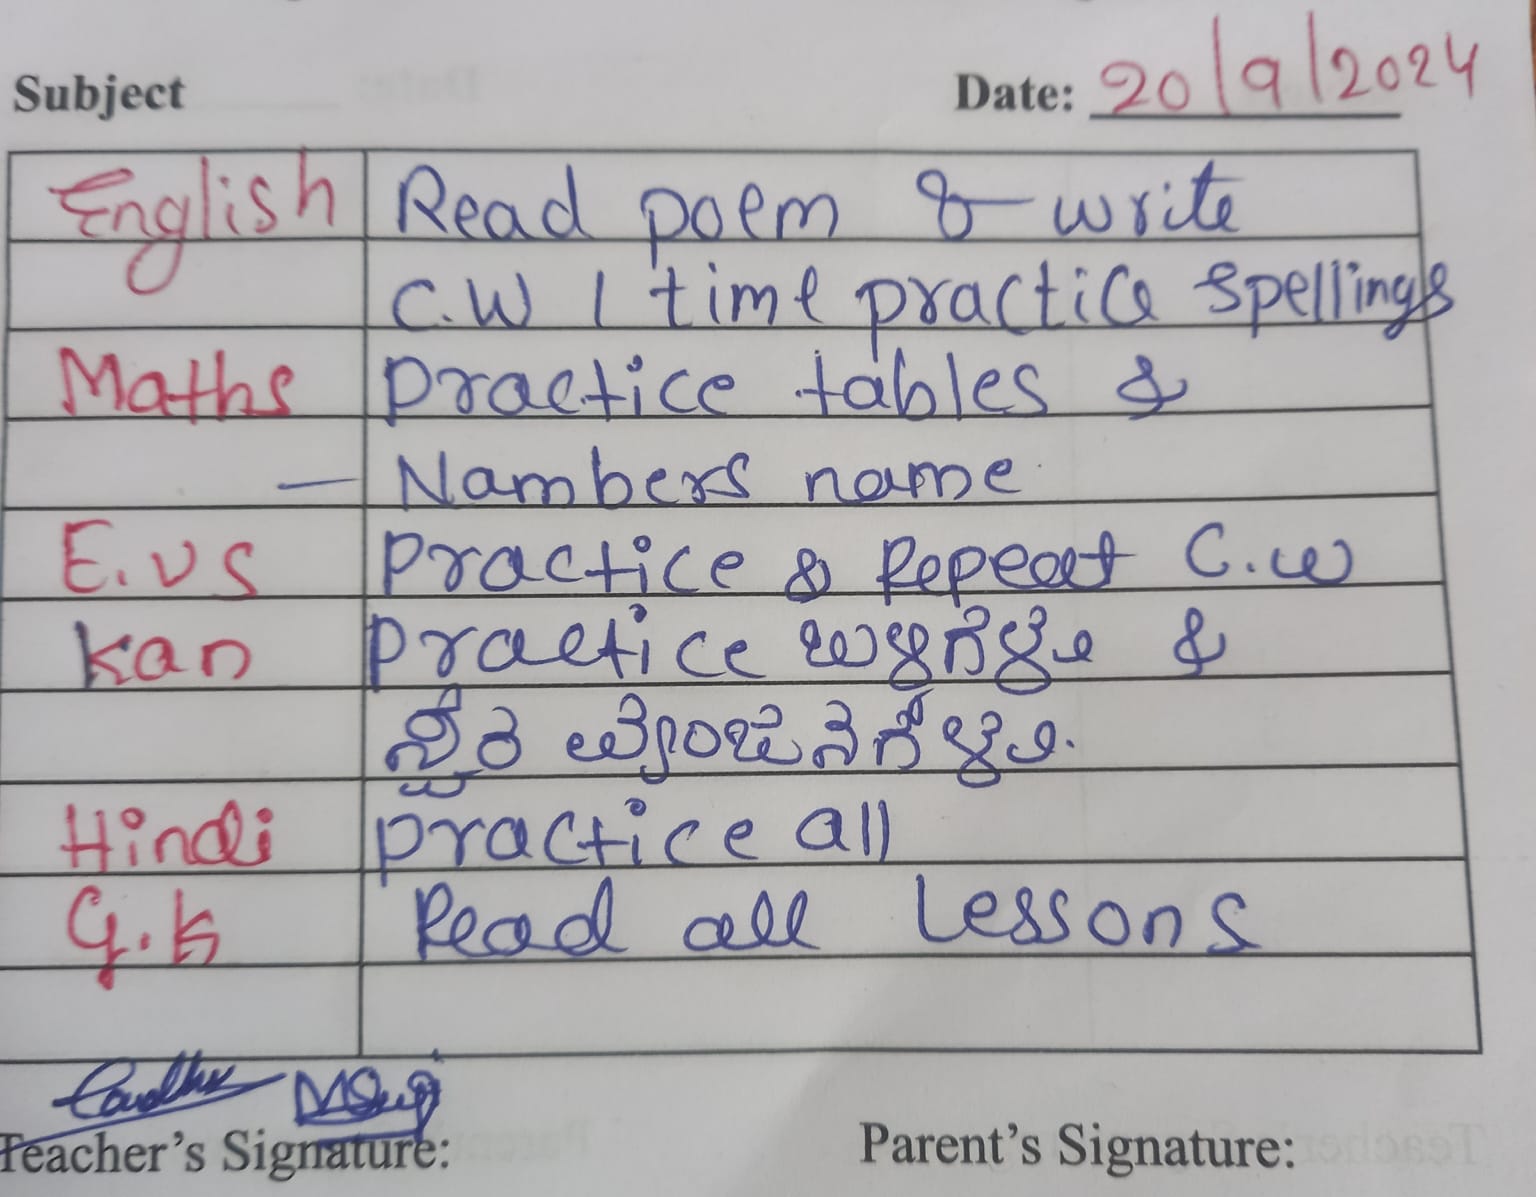 Subject Date: 20/9/2024
English Read poem & write
C.W 1 time practice Spellings
Maths practice tables &
— Nambers name
E.VS practice & Repeat C.W
Kan practice &
Hindi practice all
G.K Read all Lessons
Teacher's Signature: Parent's Signature: